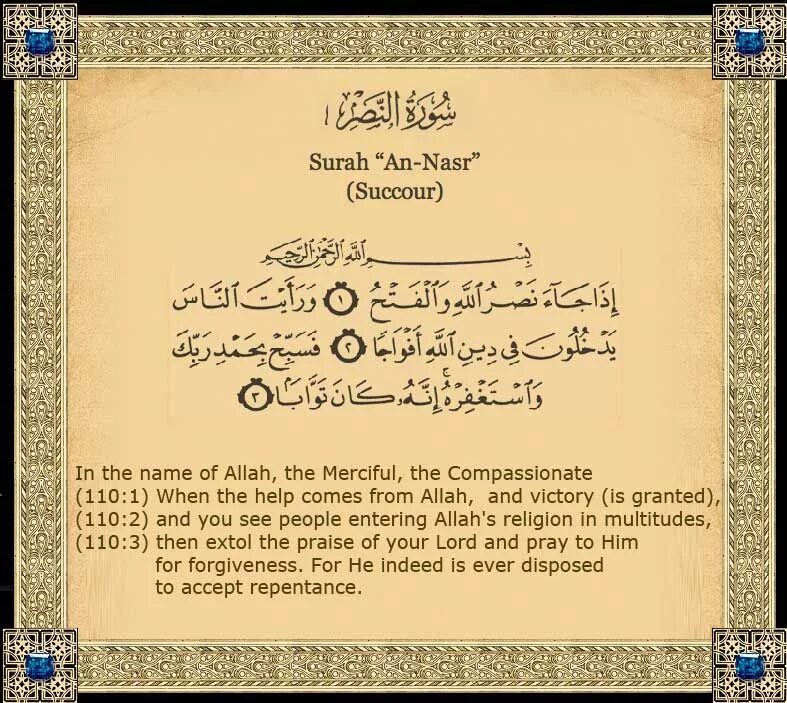 سُورَةُ النَّصْرِ
Surah “An-Nasr”
(Succour)
بِسْمِ اللَّهِ الرَّحْمَٰنِ الرَّحِيمِ
إِذَا جَآءَ نَصْرُ اللَّهِ وَالْفَتْحُ ١ وَرَأَيْتَ النَّاسَ
يَدْخُلُونَ فِي دِينِ اللَّهِ أَفْوَاجًا ٢ فَسَبِّحْ بِحَمْدِ رَبِّكَ
وَاسْتَغْفِرْهُ ۚ إِنَّهُ كَانَ تَوَّابًا ٣
In the name of Allah, the Merciful, the Compassionate
(110:1) When the help comes from Allah,  and victory (is granted),
(110:2) and you see people entering Allah's religion in multitudes,
(110:3) then extol the praise of your Lord and pray to Him
for forgiveness. For He indeed is ever disposed
to accept repentance.